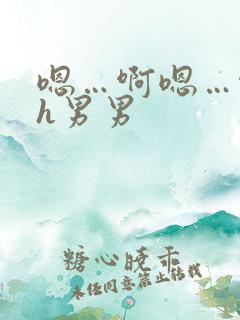 嗯…啊嗯…
h男男
糖心晓乖
未经同意禁止转载